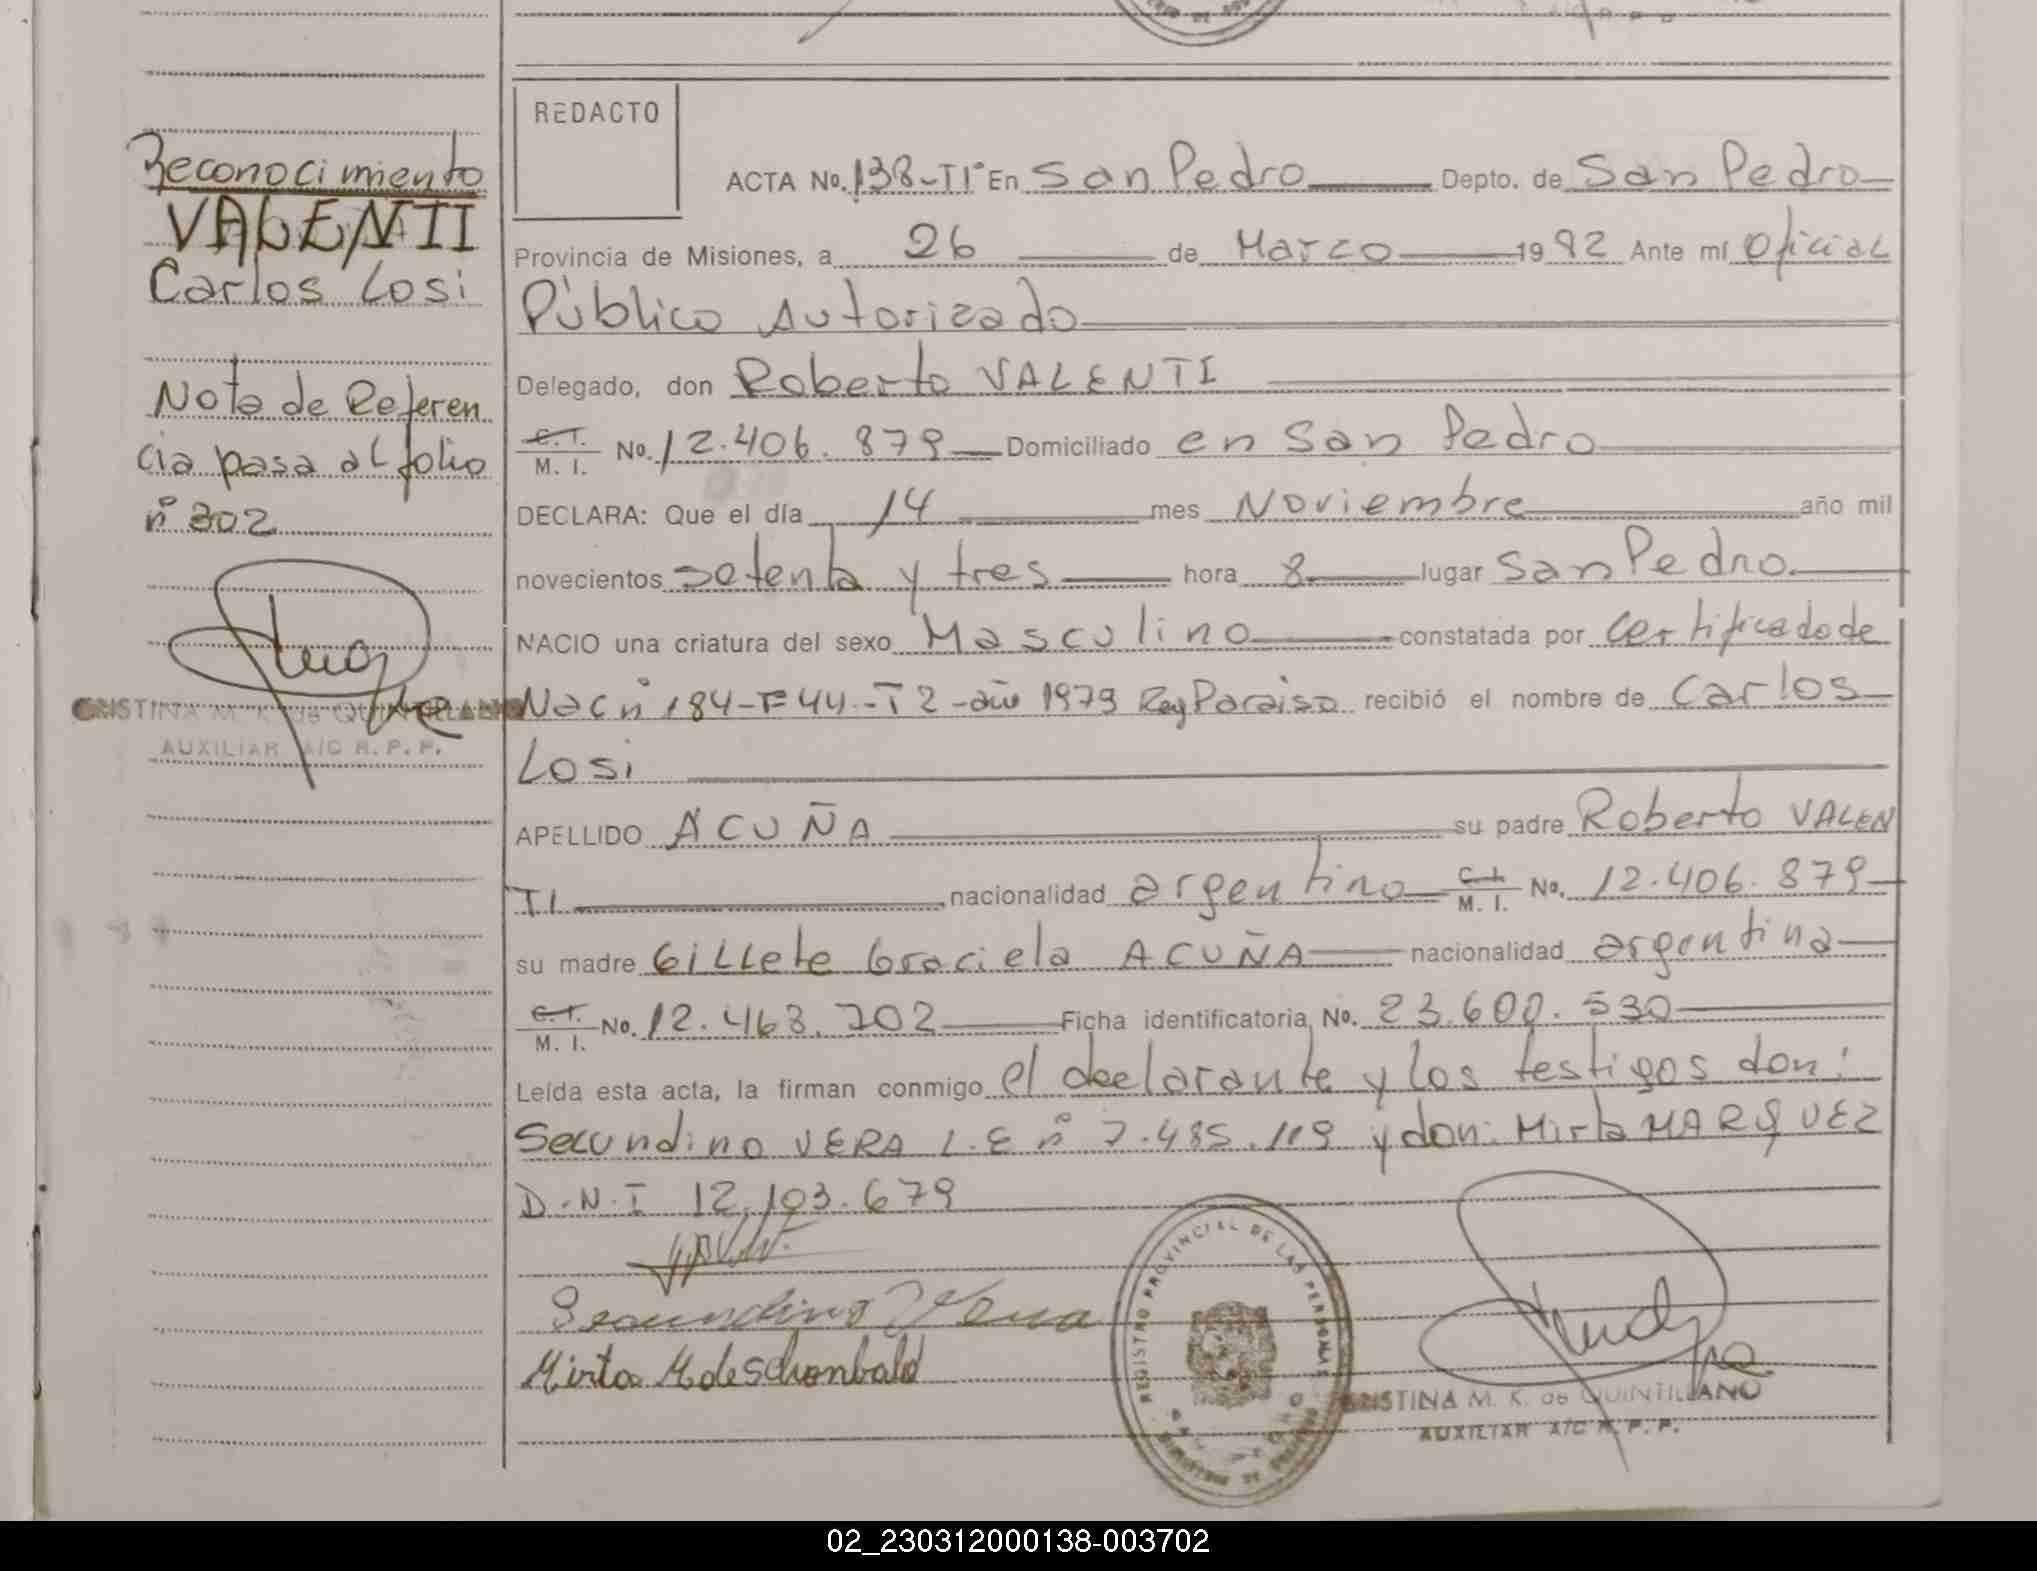 Reconocimiento
VALENTI
Carlos Losi
Nota de Referen
cia pasa al folio
nº 302
CRISTINA M. K. de QUINTILLANO
AUXILIAR A/C R. P. P.
REDACTO
ACTA No. 138-T1º En San Pedro Depto. de San Pedro
Provincia de Misiones, a 26 de Marzo 1992 Ante mí Oficial
Público Autorizado
Delegado, don Roberto VALENTI
C. I. M. I. No. 12.406.879 Domiciliado en San Pedro
DECLARA: Que el día 14 mes Noviembre año mil
novecientos setenta y tres hora 8 lugar San Pedro.
NACIO una criatura del sexo Masculino constatada por certificado de
Nac nº 184-F44-T2-año 1979 Reg Paraiso recibió el nombre de Carlos
Losi
APELLIDO ACUÑA su padre Roberto VALEN
TI nacionalidad argentino C. I. M. I. No. 12.406.879
su madre Gillete Graciela ACUÑA nacionalidad argentina
C. I. M. I. No. 12.463.702 Ficha identificatoria No. 23.600.530
Leída esta acta, la firman conmigo el declarante y los testigos don:
Secundino VERA L.E nº 7.485.119 y don: Mirta MARQUEZ
D.N.I 12.103.679
Secundino Vera
Mirta M de Schonbald
REGISTRO PROVINCIAL DE LAS PERSONAS
MINISTERIO DE GOBIERNO
CRISTINA M. K. de QUINTILLANO
AUXILIAR A/C R. P. P.
02_230312000138-003702